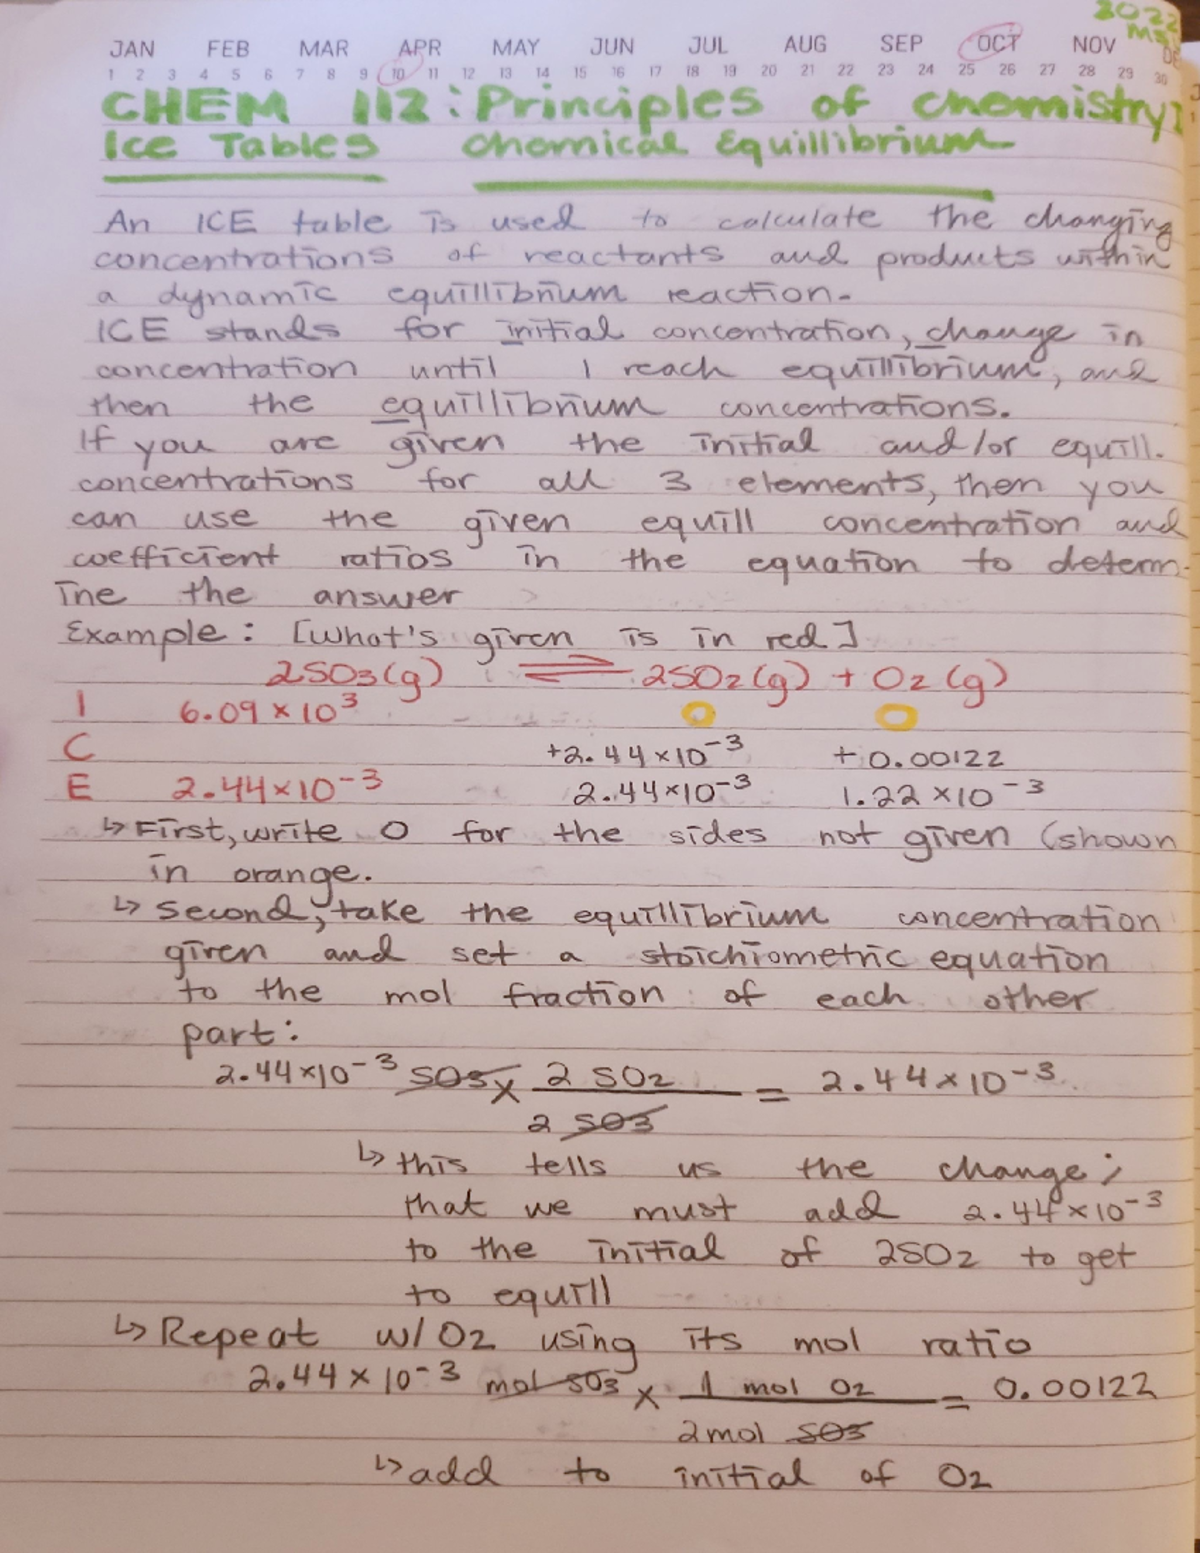 2022
MS
JAN FEB MAR APR MAY JUN JUL AUG SEP OCT NOV
1 2 3 4 5 6 7 8 9 10 11 12 13 14 15 16 17 18 19 20 21 22 23 24 25 26 27 28 29 30
CHEM 112: Principles of Chemistry
Ice Tables Chemical Equillibrium
An ICE table is used to calculate the changing
concentrations of reactants and products within
a dynamic equillibrium reaction.
ICE stands for initial concentration, change in
concentration until I reach equillibrium, and
then the equillibrium concentrations.
If you are given the initial and/or equill.
concentrations for all 3 elements, then you
can use the given equill concentration and
coefficient ratios in the equation to determ-
ine the answer
Example: [What's given is in red]
2SO3(g) ⇌ 2SO2(g) + O2(g)
I 6.09 × 10³ 0 0
C +2.44×10⁻³ +0.00122
E 2.44×10⁻³ 2.44×10⁻³ 1.22×10⁻³
↳ First, write 0 for the sides not given (shown
in orange.
↳ Second, take the equillibrium concentration
given and set a stoichiometric equation
to the mol fraction of each other
part:
2.44×10⁻³ SO3 × 2 SO2 = 2.44×10⁻³
2 SO3
↳ this tells us the change;
that we must add 2.44×10⁻³
to the initial of 2SO2 to get
to equill
↳ Repeat w/ O2 using its mol ratio
2.44 × 10⁻³ mol SO3 × 1 mol O2 = 0.00122
2 mol SO3
↳ add to initial of O2